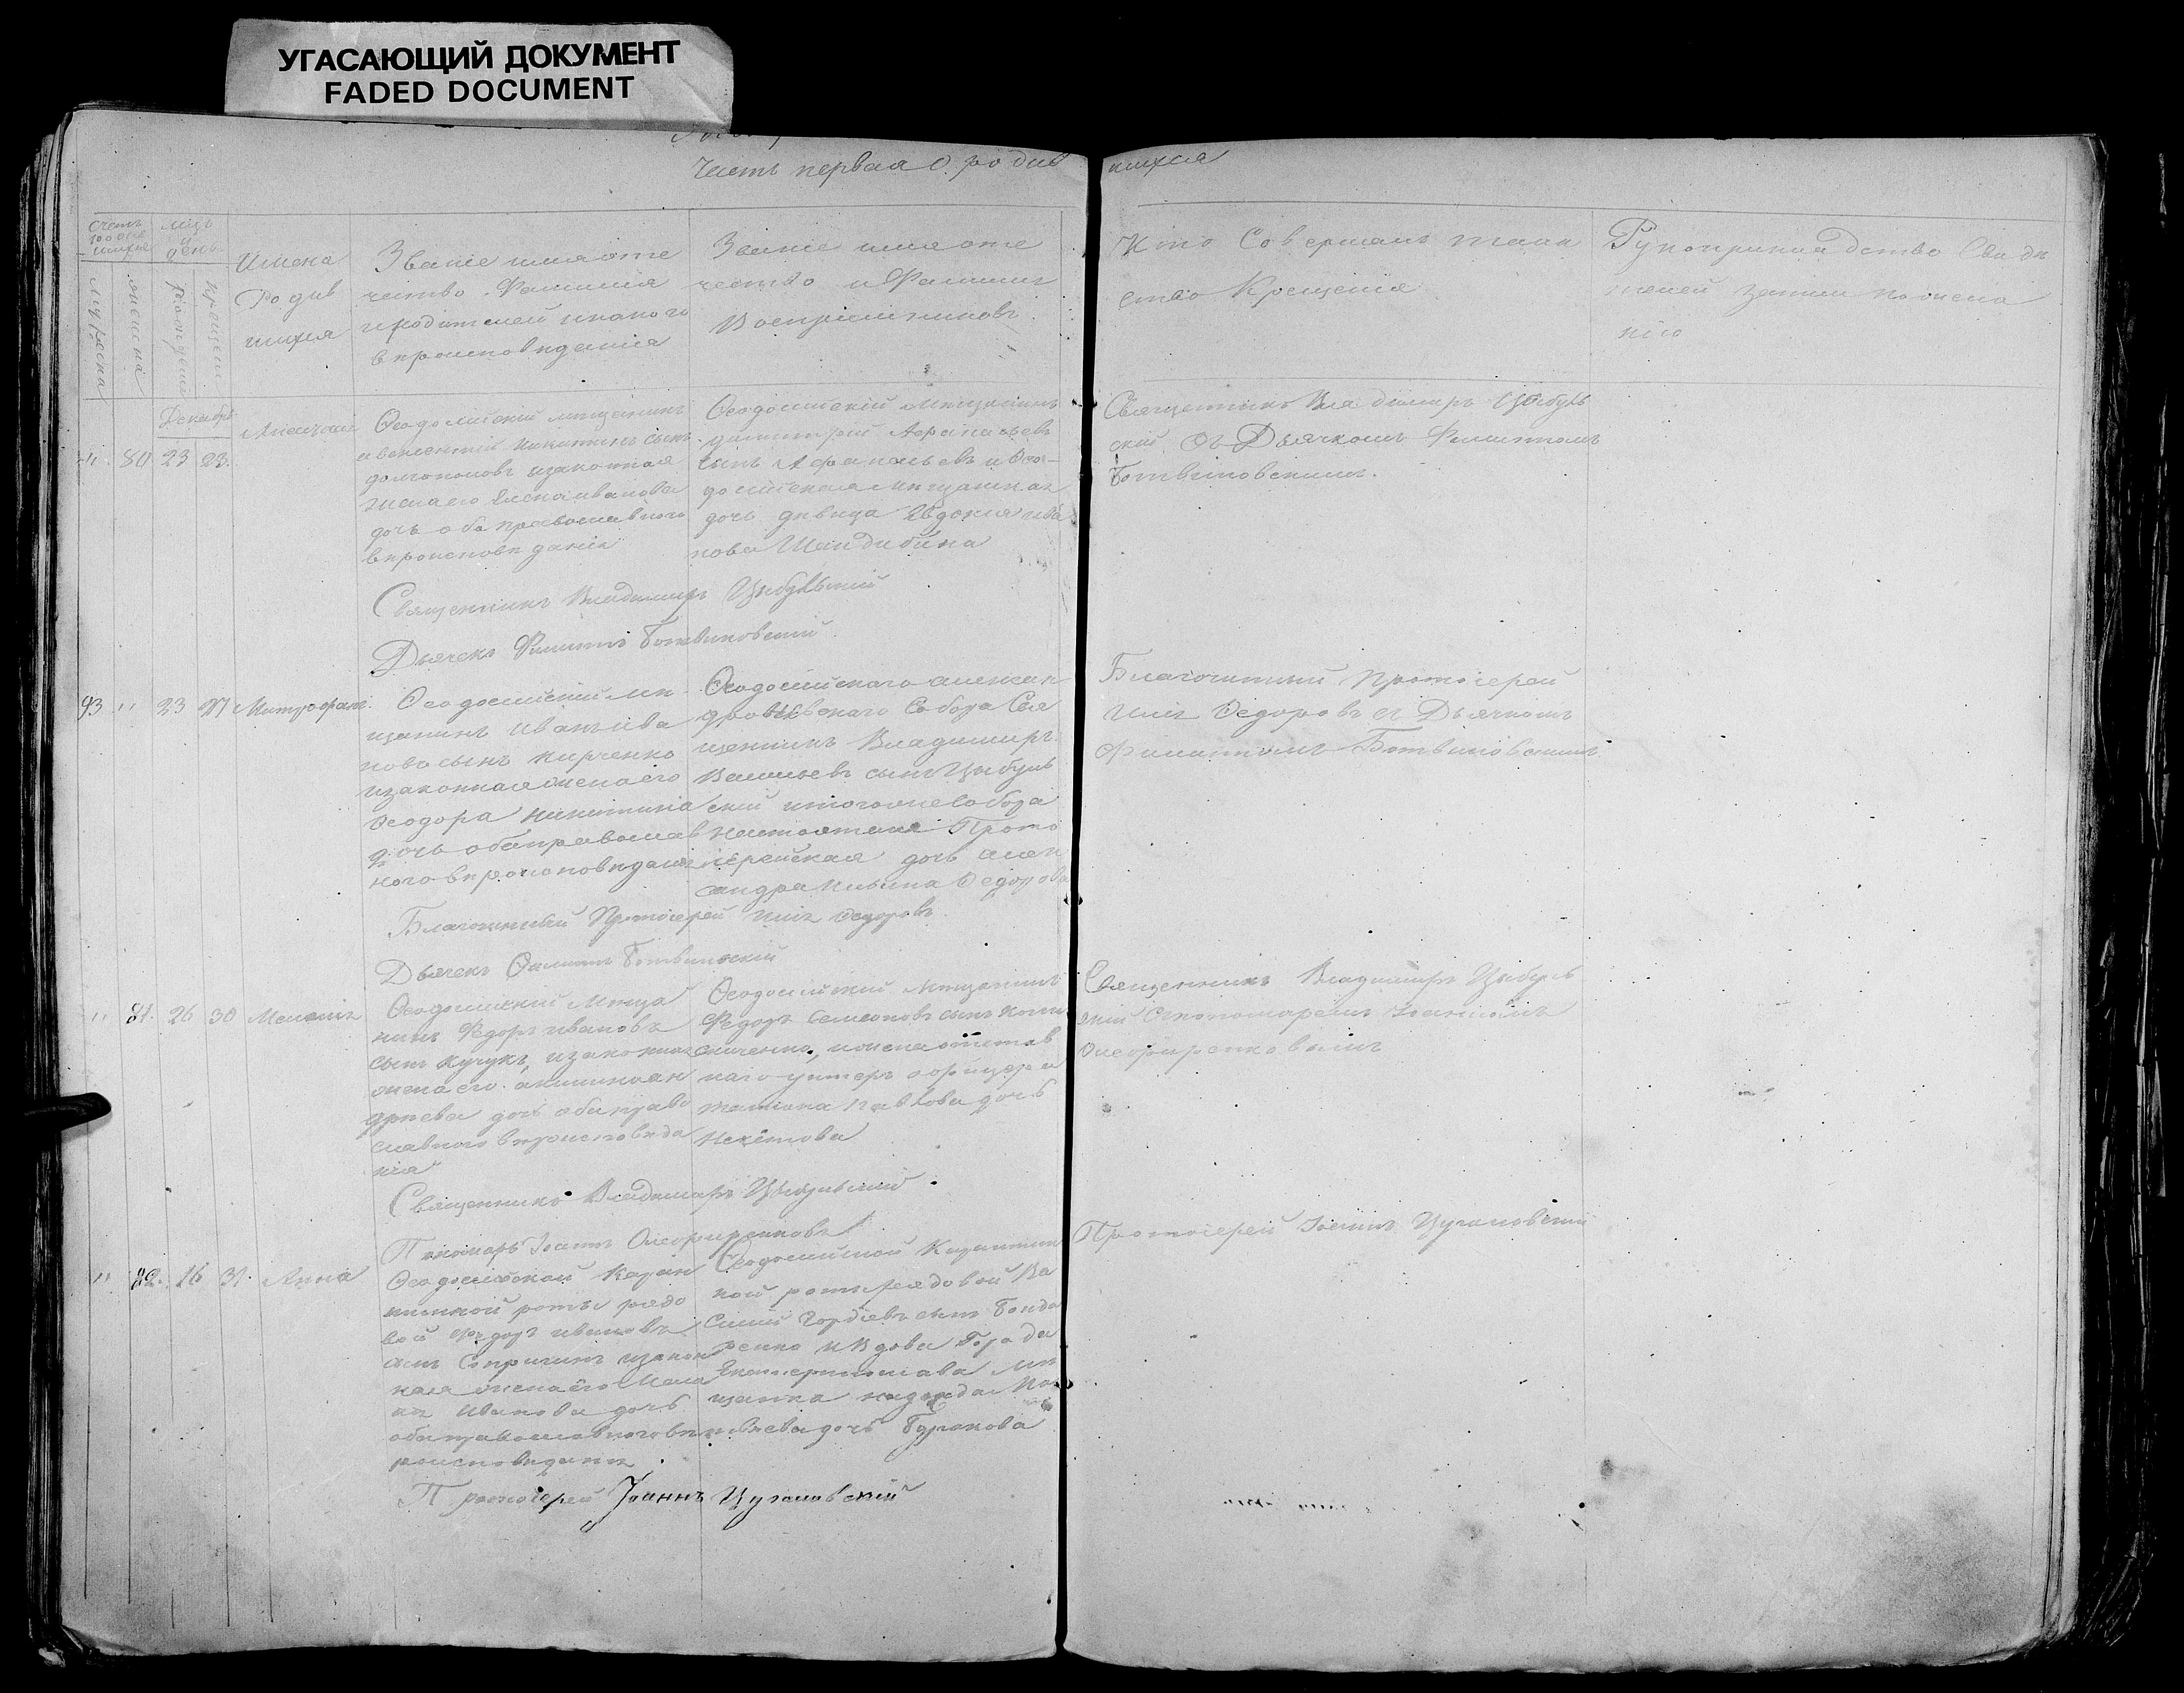 УГАСАЮЩИЙ ДОКУМЕНТ
FADED DOCUMENT
Часть первая О родив
шихся
Счетъ родив шихся
мужеска
женска
мцъ и день
рожденія
крещенія
Имена
Родив
шихся
Званіе имя оте
чество Фамилія
родителей и какого
вѣроисповѣданія
Званіе имя оте
чество и Фамилія
Воспріемниковъ.
Кто Совершалъ таин
ство Крещенія
Рукоприкладство Свидѣ
телей записи по жела
нію
Декабрь
" 80 23 23.
Ѳеодосійскій мѣщанинъ
Никитинъ сынъ
долгополовъ изаконная
жена его Елена иванова
дочь оба православнаго
вѣроисповѣданія
Ѳеодосійскій Мѣщанинъ
димитрій Аѳанасьевъ
сынъ Аѳанасьевъ и Ѳео-
досійская мѣщанская
дочь дѣвица Евдокія ива
нова
Священникъ Владимиръ Цыбуль
скій съ Дьячкомъ Филиппомъ
Ботвиновскимъ.
Священникъ Владимиръ Цыбульскій
Дьячекъ Филиппъ Ботвиновскій.
93 " 23 27 Митрофанъ.
Ѳеодосійскій мѣ
щанинъ Иванъ ива
новъ сынъ Кирченко
изаконная жена его
Ѳеодора Никитина
дочь оба православ
ного вѣроисповѣданія
Ѳеодосійского алексан
дровскаго Собора Свя
щенникъ Владимиръ
Васильевъ сынъ Цыбуль
скій итогоже Собора
настоятеля Прото
іерейская дочь алек
сандра Ильина Ѳедорова
Благочинный Протоіерей
Илія Ѳедоровъ съ Дьячкомъ
Филиппомъ Ботвиновскимъ
Благочинный Протоіерей Илія Ѳедоровъ.
Дьячекъ Филиппъ Ботвиновскій
" 81. 26 30 Меланія
Ѳеодосійскій Мѣща
нинъ Ѳедоръ ивановъ
сынъ Кучукъ, изаконная
жена его акилина ан
дреева дочь оба право
славного вѣроисповѣда
нія
Ѳеодосійскій Мѣщанинъ
Федоръ Семеоновъ сынъ
ижена отстав
наго унтеръ офицера
татіана Павлова дочь
Священникъ Владимиръ Цыбуль
скій Съ пономаремъ Іоанномъ
Священникъ Владимиръ Цыбульскій.
Пономарь Іоаннъ
" 82. 16 31. Анна
Ѳеодосійской Каран
тинной роты рядо
вой Ѳедоръ ивановъ
изакон
ная жена его Мела
нія Иванова дочь
оба православного вѣ
роисповѣданія
Ѳеодосійской Карантин
ной роты рядовой Ва
силій Гордіевъ сынъ Бонда
ренко и Вдова Города
Екатеринослава Мѣ
щанка надежда Мат
вѣева дочь Буракова
Протоіерей Іоаннъ Цугановскій
Протоіерей Іоаннъ Цугановскій